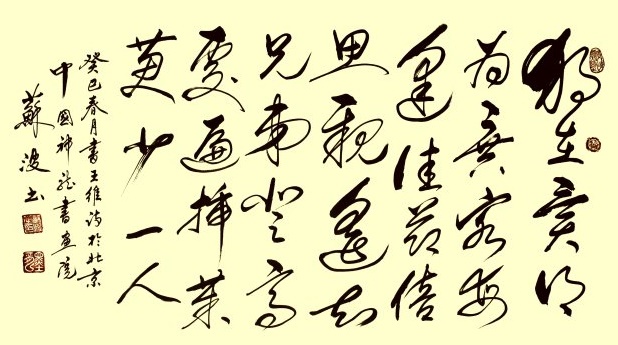 獨在異鄉
為異客每
逢佳節倍
思親遙知
兄弟登高
處遍插茱
萸少一人
癸巳春月書王維詩於北京
中國神龍書畫院
蘇波書